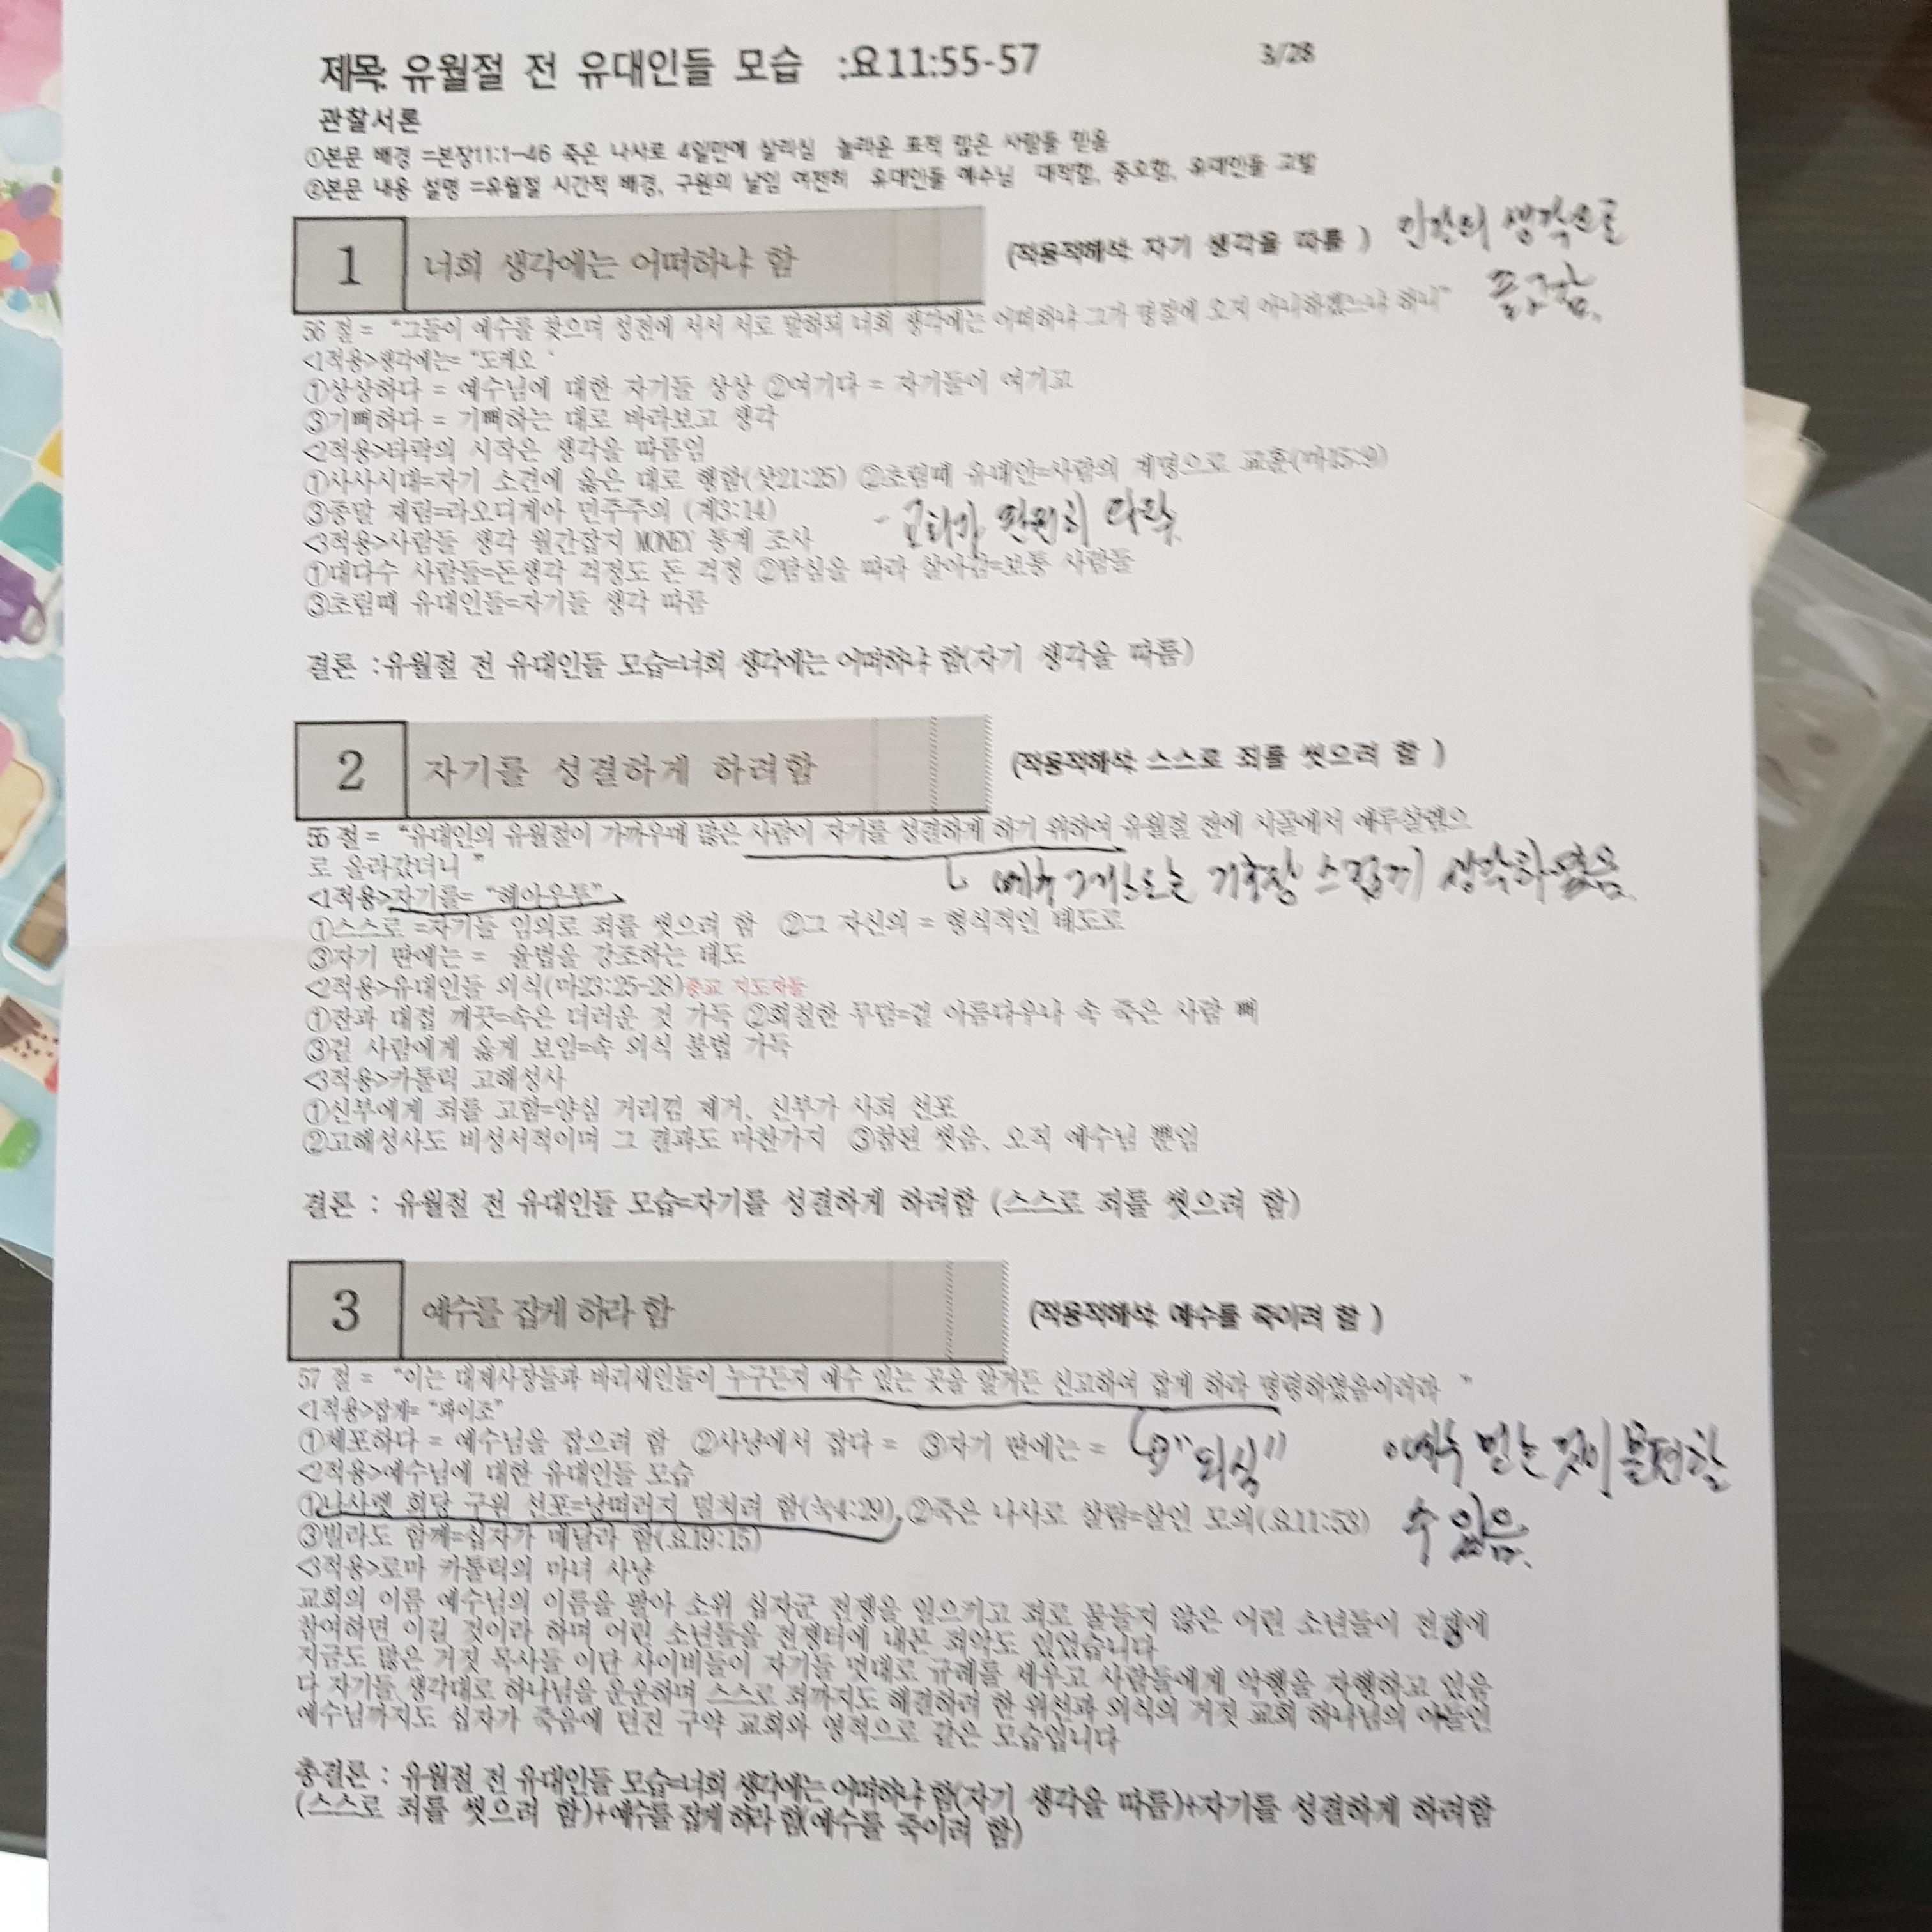 제목: 유월절 전 유대인들 모습 :요11:55-57 3/28
관찰서론
①본문 배경 =본장11:1-46 죽은 나사로 4일만에 살리심 놀라운 표적 많은 사람들 믿음
②본문 내용 설명 =유월절 시간적 배경, 구원의 날임 여전히 유대인들 예수님 대적함, 증오함, 유대인들 고발
1 너희 생각에는 어떠하냐 함 (적용적해석: 자기 생각을 따름 ) 인간의 생각으로
56 절 = "그들이 예수를 찾으며 성전에 서서 서로 말하되 너희 생각에는 어떠하냐 그가 명절에 오지 아니하겠느냐 하니"
<1적용>생각에는= "도케오 '
①상상하다 = 예수님에 대한 자기들 상상 ②여기다 = 자기들이 여기고
③기뻐하다 = 기뻐하는 대로 바라보고 생각
<2적용>타락의 시작은 생각을 따름임
①사사시대=자기 소견에 옳은 대로 행함(삿21:25) ②초림때 유대인=사람의 계명으로 교훈(마15:9)
③종말 재림=라오디게아 민주주의 (계3:14) - 교회가 완전히 타락.
<3적용>사람들 생각 월간잡지 MONEY 통계 조사
①대다수 사람들=돈생각 걱정도 돈 걱정 ②탐심을 따라 살아감=보통 사람들
③초림때 유대인들=자기들 생각 따름
결론 :유월절 전 유대인들 모습=너희 생각에는 어떠하냐 함(자기 생각을 따름)
2 자기를 성결하게 하려함 (적용적해석: 스스로 죄를 씻으려 함 )
55 절 = "유대인의 유월절이 가까우매 많은 사람이 자기를 성결하게 하기 위하여 유월절 전에 시골에서 예루살렘으
로 올라갔더니 "
예수 그리스도는 생각하 않음.
<1적용>자기를= "헤아우투"
①스스로 =자기들 임의로 죄를 씻으려 함 ②그 자신의 = 형식적인 태도로
③자기 딴에는 = 율법을 강조하는 태도
<2적용>유대인들 외식(마23:25-28)종교 지도자들
①잔과 대접 깨끗=속은 더러운 것 가득 ②회칠한 무덤=겉 아름다우나 속 죽은 사람 뼈
③겉 사람에게 옳게 보임=속 외식 불법 가득
<3적용>카톨릭 고해성사
①신부에게 죄를 고함=양심 거리낌 제거, 신부가 사죄 선포
②고해성사도 비성서적이며 그 결과도 마찬가지 ③참된 씻음, 오직 예수님 뿐임
결론 : 유월절 전 유대인들 모습=자기를 성결하게 하려함 (스스로 죄를 씻으려 함)
3 예수를 잡게 하라 함 (적용적해석: 예수를 죽이려 함 )
57 절 = "이는 대제사장들과 바리새인들이 누구든지 예수 있는 곳을 알거든 신고하여 잡게 하라 명령하였음이러라 "
<1적용>잡게= "피아조"
①체포하다 = 예수님을 잡으려 함 ②사냥에서 잡다 = ③자기 딴에는 = "외식" 예수 믿는 것이 불편할
<2적용>예수님에 대한 유대인들 모습
①나사렛 회당 구원 선포=낭떠러지 밀치려 함(눅4:29), ②죽은 나사로 살림=살인 모의(요11:53) 수 있음.
③빌라도 함께=십자가 매달라 함(요19:15)
<3적용>로마 카톨릭의 마녀 사냥
교회의 이름 예수님의 이름을 팔아 소위 십자군 전쟁을 일으키고 죄로 물들지 않은 어린 소년들이 전쟁에
참여하면 이길 것이라 하며 어린 소년들을 전쟁터에 내몬 죄악도 있었습니다
지금도 많은 거짓 목사들 이단 사이비들이 자기들 멋대로 규례를 세우고 사람들에게 악행을 자행하고 있음
다 자기들 생각대로 하나님을 운운하며 스스로 죄까지도 해결하려 한 위선과 외식의 거짓 교회 하나님의 아들인
예수님까지도 십자가 죽음에 던진 구약 교회와 영적으로 같은 모습입니다
총결론 : 유월절 전 유대인들 모습=너희 생각에는 어떠하냐 함(자기 생각을 따름)+자기를 성결하게 하려함
(스스로 죄를 씻으려 함)+예수를 잡게 하라 함(예수를 죽이려 함)